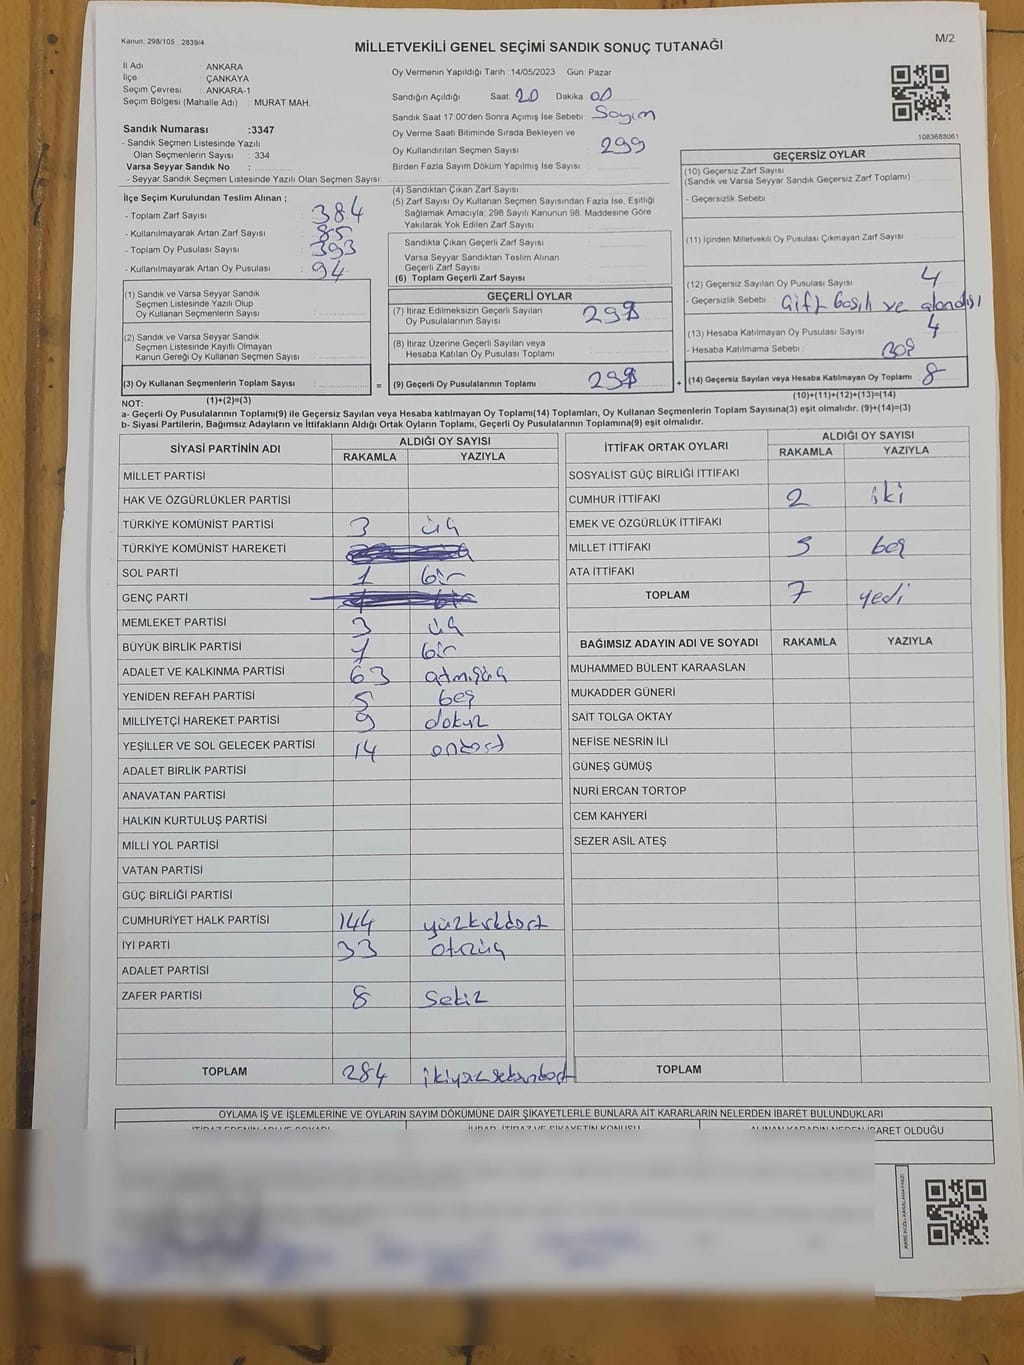 Kanun; 298/105 , 2839/4
M/2
MİLLETVEKİLİ GENEL SEÇİMİ SANDIK SONUÇ TUTANAĞI
İl Adı : ANKARA
İlçe : ÇANKAYA
Seçim Çevresi : ANKARA-1
Seçim Bölgesi (Mahalle Adı) : MURAT MAH.
Sandık Numarası :3347
- Sandık Seçmen Listesinde Yazılı
Olan Seçmenlerin Sayısı : 334
Varsa Seyyar Sandık No :
- Seyyar Sandık Seçmen Listesinde Yazılı Olan Seçmen Sayısı:
Oy Vermenin Yapıldığı Tarih :14/05/2023 Gün: Pazar
Sandığın Açıldığı Saat: 20 Dakika 00
Sandık Saat 17.00'den Sonra Açımış İse Sebebi: Sayım
Oy Verme Saati Bitiminde Sırada Bekleyen ve
Oy Kullandırılan Seçmen Sayısı : 299
Birden Fazla Sayım Döküm Yapılmış İse Sayısı :
1083688061
İlçe Seçim Kurulundan Teslim Alınan ;
- Toplam Zarf Sayısı : 384
- Kullanılmayarak Artan Zarf Sayısı : 85
- Toplam Oy Pusulası Sayısı : 393
- Kullanılmayarak Artan Oy Pusulası : 94
(1) Sandık ve Varsa Seyyar Sandık
Seçmen Listesinde Yazılı Olup
Oy Kullanan Seçmenlerin Sayısı :
(2) Sandık ve Varsa Seyyar Sandık
Seçmen Listesinde Kayıtlı Olmayan
Kanun Gereği Oy Kullanan Seçmen Sayısı :
(3) Oy Kullanan Seçmenlerin Toplam Sayısı :
(1)+(2)=(3)
(4) Sandıktan Çıkan Zarf Sayısı :
(5) Zarf Sayısı Oy Kullanan Seçmen Sayısından Fazla İse, Eşitliği
Sağlamak Amacıyla; 298 Sayılı Kanunun 98. Maddesine Göre
Yakılarak Yok Edilen Zarf Sayısı :
Sandıkta Çıkan Geçerli Zarf Sayısı :
Varsa Seyyar Sandıktan Teslim Alınan
Geçerli Zarf Sayısı :
(6) Toplam Geçerli Zarf Sayısı :
GEÇERLİ OYLAR
(7) İtiraz Edilmeksizin Geçerli Sayılan
Oy Pusulalarının Sayısı :
(8) İtiraz Üzerine Geçerli Sayılan veya
Hesaba Katılan Oy Pusulası Toplamı :
= (9) Geçerli Oy Pusulalarının Toplamı :
GEÇERSİZ OYLAR
(10) Geçersiz Zarf Sayısı
(Sandık ve Varsa Seyyar Sandık Geçersiz Zarf Toplamı) :
- Geçersizlik Sebebi :
(11) İçinden Milletvekili Oy Pusulası Çıkmayan Zarf Sayısı :
(12) Geçersiz Sayılan Oy Pusulası Sayısı : 4
- Geçersizlik Sebebi : Çift basılı ve
(13) Hesaba Katılmayan Oy Pusulası Sayısı : 4
- Hesaba Katılmama Sebebi : Boş
+ (14) Geçersiz Sayılan veya Hesaba Katılmayan Oy Toplamı : 8
(10)+(11)+(12)+(13)=(14)
NOT:
a- Geçerli Oy Pusulalarının Toplamı(9) ile Geçersiz Sayılan veya Hesaba katılmayan Oy Toplamı(14) Toplamları, Oy Kullanan Seçmenlerin Toplam Sayısına(3) eşit olmalıdır. (9)+(14)=(3)
b- Siyasi Partilerin, Bağımsız Adayların ve İttifakların Aldığı Oy Ortak Oyların Toplamı, Geçerli Oy Pusulalarının Toplamına(9) eşit olmalıdır.
SİYASİ PARTİNİN ADI ALDIĞI OY SAYISI
RAKAMLA YAZIYLA
MİLLET PARTİSİ
HAK VE ÖZGÜRLÜKLER PARTİSİ
TÜRKİYE KOMÜNİST PARTİSİ 3 üç
TÜRKİYE KOMÜNİST HAREKETİ
SOL PARTİ 1 bir
GENÇ PARTİ
MEMLEKET PARTİSİ 3 üç
BÜYÜK BİRLİK PARTİSİ 1 bir
ADALET VE KALKINMA PARTİSİ 63 atmışüç
YENİDEN REFAH PARTİSİ 5 beş
MİLLİYETÇİ HAREKET PARTİSİ 9 dokuz
YEŞİLLER VE SOL GELECEK PARTİSİ 14 ondört
ADALET BİRLİK PARTİSİ
ANAVATAN PARTİSİ
HALKIN KURTULUŞ PARTİSİ
MİLLİ YOL PARTİSİ
VATAN PARTİSİ
GÜÇ BİRLİĞİ PARTİSİ
CUMHURİYET HALK PARTİSİ 144 yüzkırkdört
İYİ PARTİ 33 otuzüç
ADALET PARTİSİ
ZAFER PARTİSİ 8 sekiz
TOPLAM 284 ikiyüzseksendört
İTTİFAK ORTAK OYLARI ALDIĞI OY SAYISI
RAKAMLA YAZIYLA
SOSYALİST GÜÇ BİRLİĞİ İTTİFAKI
CUMHUR İTTİFAKI 2 iki
EMEK VE ÖZGÜRLÜK İTTİFAKI
MİLLET İTTİFAKI 5 beş
ATA İTTİFAKI
TOPLAM 7 yedi
BAĞIMSIZ ADAYIN ADI VE SOYADI RAKAMLA YAZIYLA
MUHAMMED BÜLENT KARAASLAN
MUKADDER GÜNERİ
SAİT TOLGA OKTAY
NEFİSE NESRİN İLİ
GÜNEŞ GÜMÜŞ
NURİ ERCAN TORTOP
CEM KAHYERİ
SEZER ASİL ATEŞ
TOPLAM
OYLAMA İŞ VE İŞLEMLERİNE VE OYLARIN SAYIM DÖKÜMÜNE DAİR ŞİKAYETLERLE BUNLARA AİT KARARLARIN NELERDEN İBARET BULUNDUKLARI
İBARET OLDUĞU